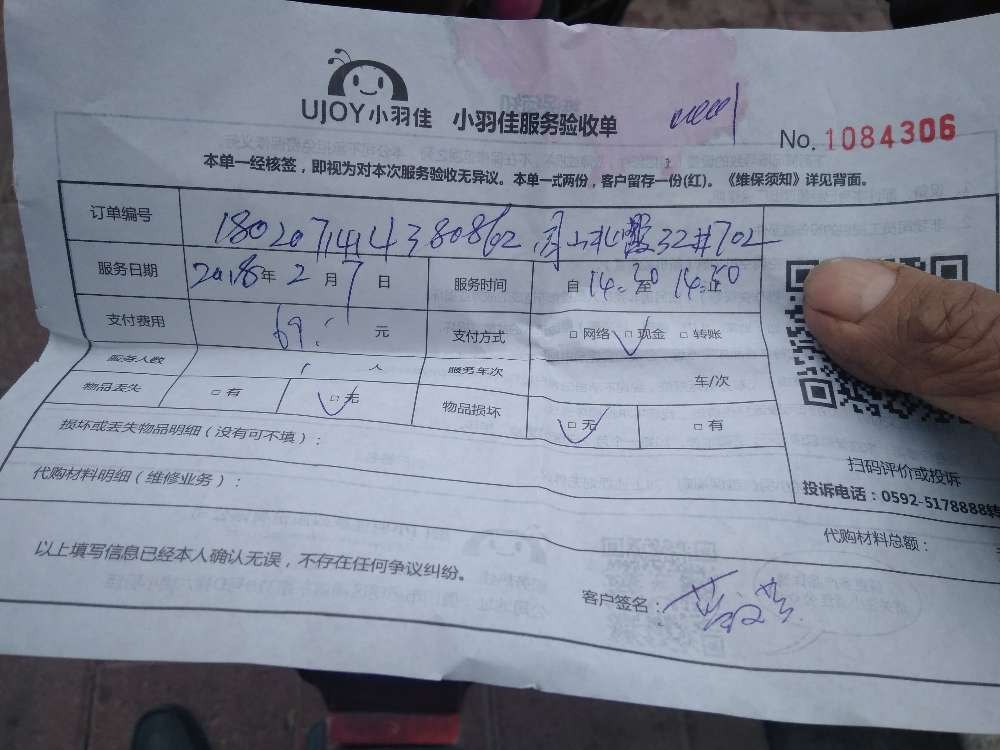 UJOY小羽佳 小羽佳服务验收单
No. 1084306
本单一经核签，即视为对本次服务验收无异议。本单一式两份，客户留存一份(红)。《维保须知》详见背面。
订单编号 18020714143 80862 32#702
服务日期 2018年 2 月 7 日 服务时间 自 14:30 至 14:50
支付费用 69. 元 支付方式 □网络 □现金 □转账
服务人数 1 人 服务车次 车/次
物品丢失 □有 □无 物品损坏 □无 □有
损坏或丢失物品明细（没有可不填）：
扫码评价或投诉
代购材料明细（维修业务）：
投诉电话：0592-5178888转
代购材料总额：
以上填写信息已经本人确认无误，不存在任何争议纠纷。
客户签名：